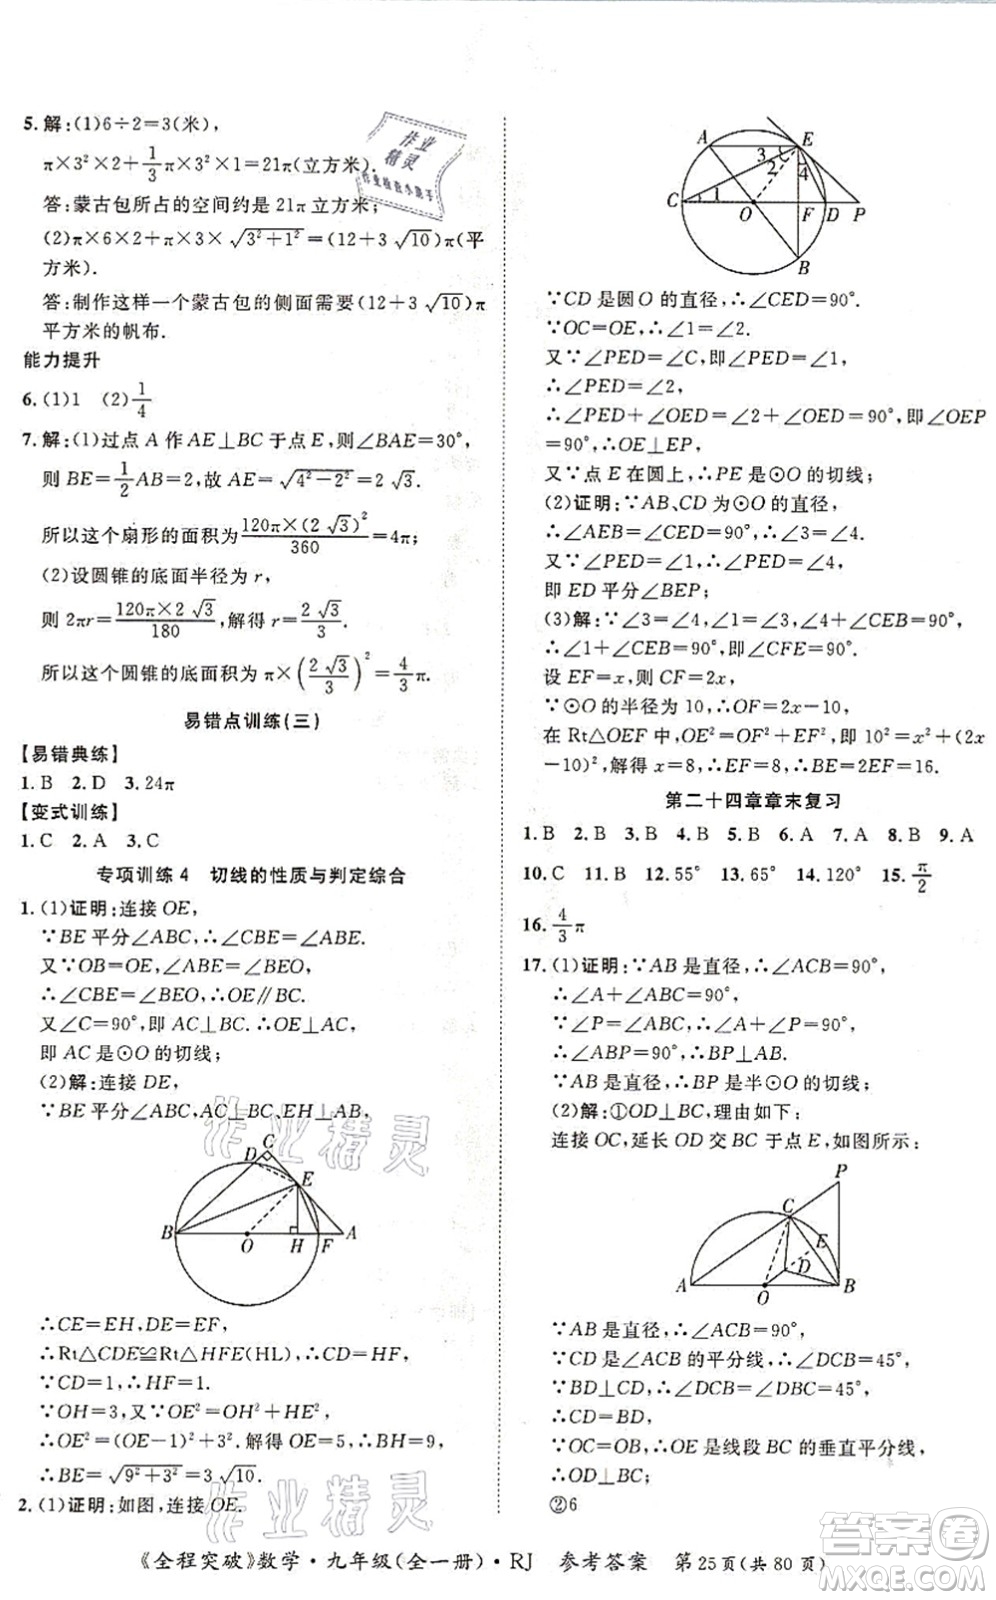 5.解:(1)6÷2=3(米),
π×3²×2+1/3π×3²×1=21π(立方米).
答:蒙古包所占的空间约是 21π立方米;
(2)π×6×2+π×3×√(3²+1²)=(12+3√10)π(平
方米).
答:制作这样一个蒙古包的侧面需要(12+3√10)π
平方米的帆布.
能力提升
6.(1)1 (2)1/4
7.解:(1)过点 A 作 AE⊥BC 于点 E,则∠BAE=30°,
则 BE=1/2AB=2,故 AE=√(4²-2²)=2√3.
所以这个扇形的面积为120π×(2√3)²/360=4π;
(2)设圆锥的底面半径为 r,
则 2πr=120π×2√3/180,解得 r=2√3/3.
所以这个圆锥的底面积为 π×(2√3/3)²=4/3π.
易错点训练(三)
【易错典练】
1.B 2.D 3.24π
【变式训练】
1.C 2.A 3.C
专项训练 4 切线的性质与判定综合
1.(1)证明:连接 OE,
∵BE 平分∠ABC,∴∠CBE=∠ABE.
又∵OB=OE,∴∠ABE=∠BEO.
∴∠CBE=∠BEO,∴OE∥BC.
又∠C=90°,即 AC⊥BC.∴OE⊥AC,
即 AC 是⊙O 的切线;
(2)解:连接 DE,
∵BE 平分∠ABC,AC⊥BC,EH⊥AB,
C
D
E
B
O
H
F
A
∴CE=EH,DE=EF,
∴Rt△CDE≌Rt△HFE(HL),∴CD=HF,
∵CD=1,∴HF=1.
∵OH=3,又∵OE²=OH²+EH²,
∴OE²=(OE-1)²+3².解得 OE=5,∴BH=9,
∴BE=√(9²+3²)=3√10.
2.(1)证明:如图,连接 OE.
A
E
3
2
4
C
1
O
F
D
P
B
∵CD 是圆 O 的直径,∴∠CED=90°.
∵OC=OE,∴∠1=∠2.
又∵∠PED=∠C,即∠PED=∠1,
∴∠PED=∠2,
∴∠PED+∠OED=∠2+∠OED=90°,即∠OEP
=90°,∴OE⊥EP,
又∵点 E 在圆上,∴PE 是⊙O 的切线;
(2)证明:∵AB、CD 为⊙O 的直径,
∴∠AEB=∠CED=90°,∴∠3=∠4.
又∵∠PED=∠1,∴∠PED=∠4,
即 ED 平分∠BEP;
(3)解:∵∠3=∠4,∠1=∠3,∠4+∠CEB=90°,
∴∠1+∠CEB=90°,∴∠CFE=90°.
设 EF=x,则 CF=2x,
∵⊙O 的半径为 10,∴OF=2x-10,
在 Rt△OEF 中,OE²=OF²+EF²,即 10²=x²+(2x
-10)²,解得 x=8,∴EF=8,∴BE=2EF=16.
第二十四章章末复习
1.B 2.B 3.B 4.C 5.B 6.A 7.A 8.B 9.A
10.C 11.B 12.55° 13.65° 14.120° 15.π/2
16.4/3π
17.(1)证明:∵AB 是直径,∴∠ACB=90°,
∴∠A+∠ABC=90°,
∵∠P=∠ABC,∴∠A+∠P=90°,
∴∠ABP=90°,∴BP⊥AB.
∵AB 是直径,∴BP 是半⊙O 的切线;
(2)解:①OD⊥BC,理由如下:
连接 OC,延长 OD 交 BC 于点 E,如图所示:
P
C
E
D
A
O
B
∵AB 是直径,∴∠ACB=90°,
∵CD 是∠ACB 的平分线,∴∠DCB=45°,
∵∠DBC=45°,∴∠DCB=∠DBC=45°,
∴CD=BD,
∵OC=OB,∴OE 是线段 BC 的垂直平分线,
∴OD⊥BC;
②6
《全程突破》数学·九年级(全一册)·RJ 参考答案 第 25 页(共 80 页)
作业精灵
作业精灵
作业精灵
答案圈
MXQE.COM